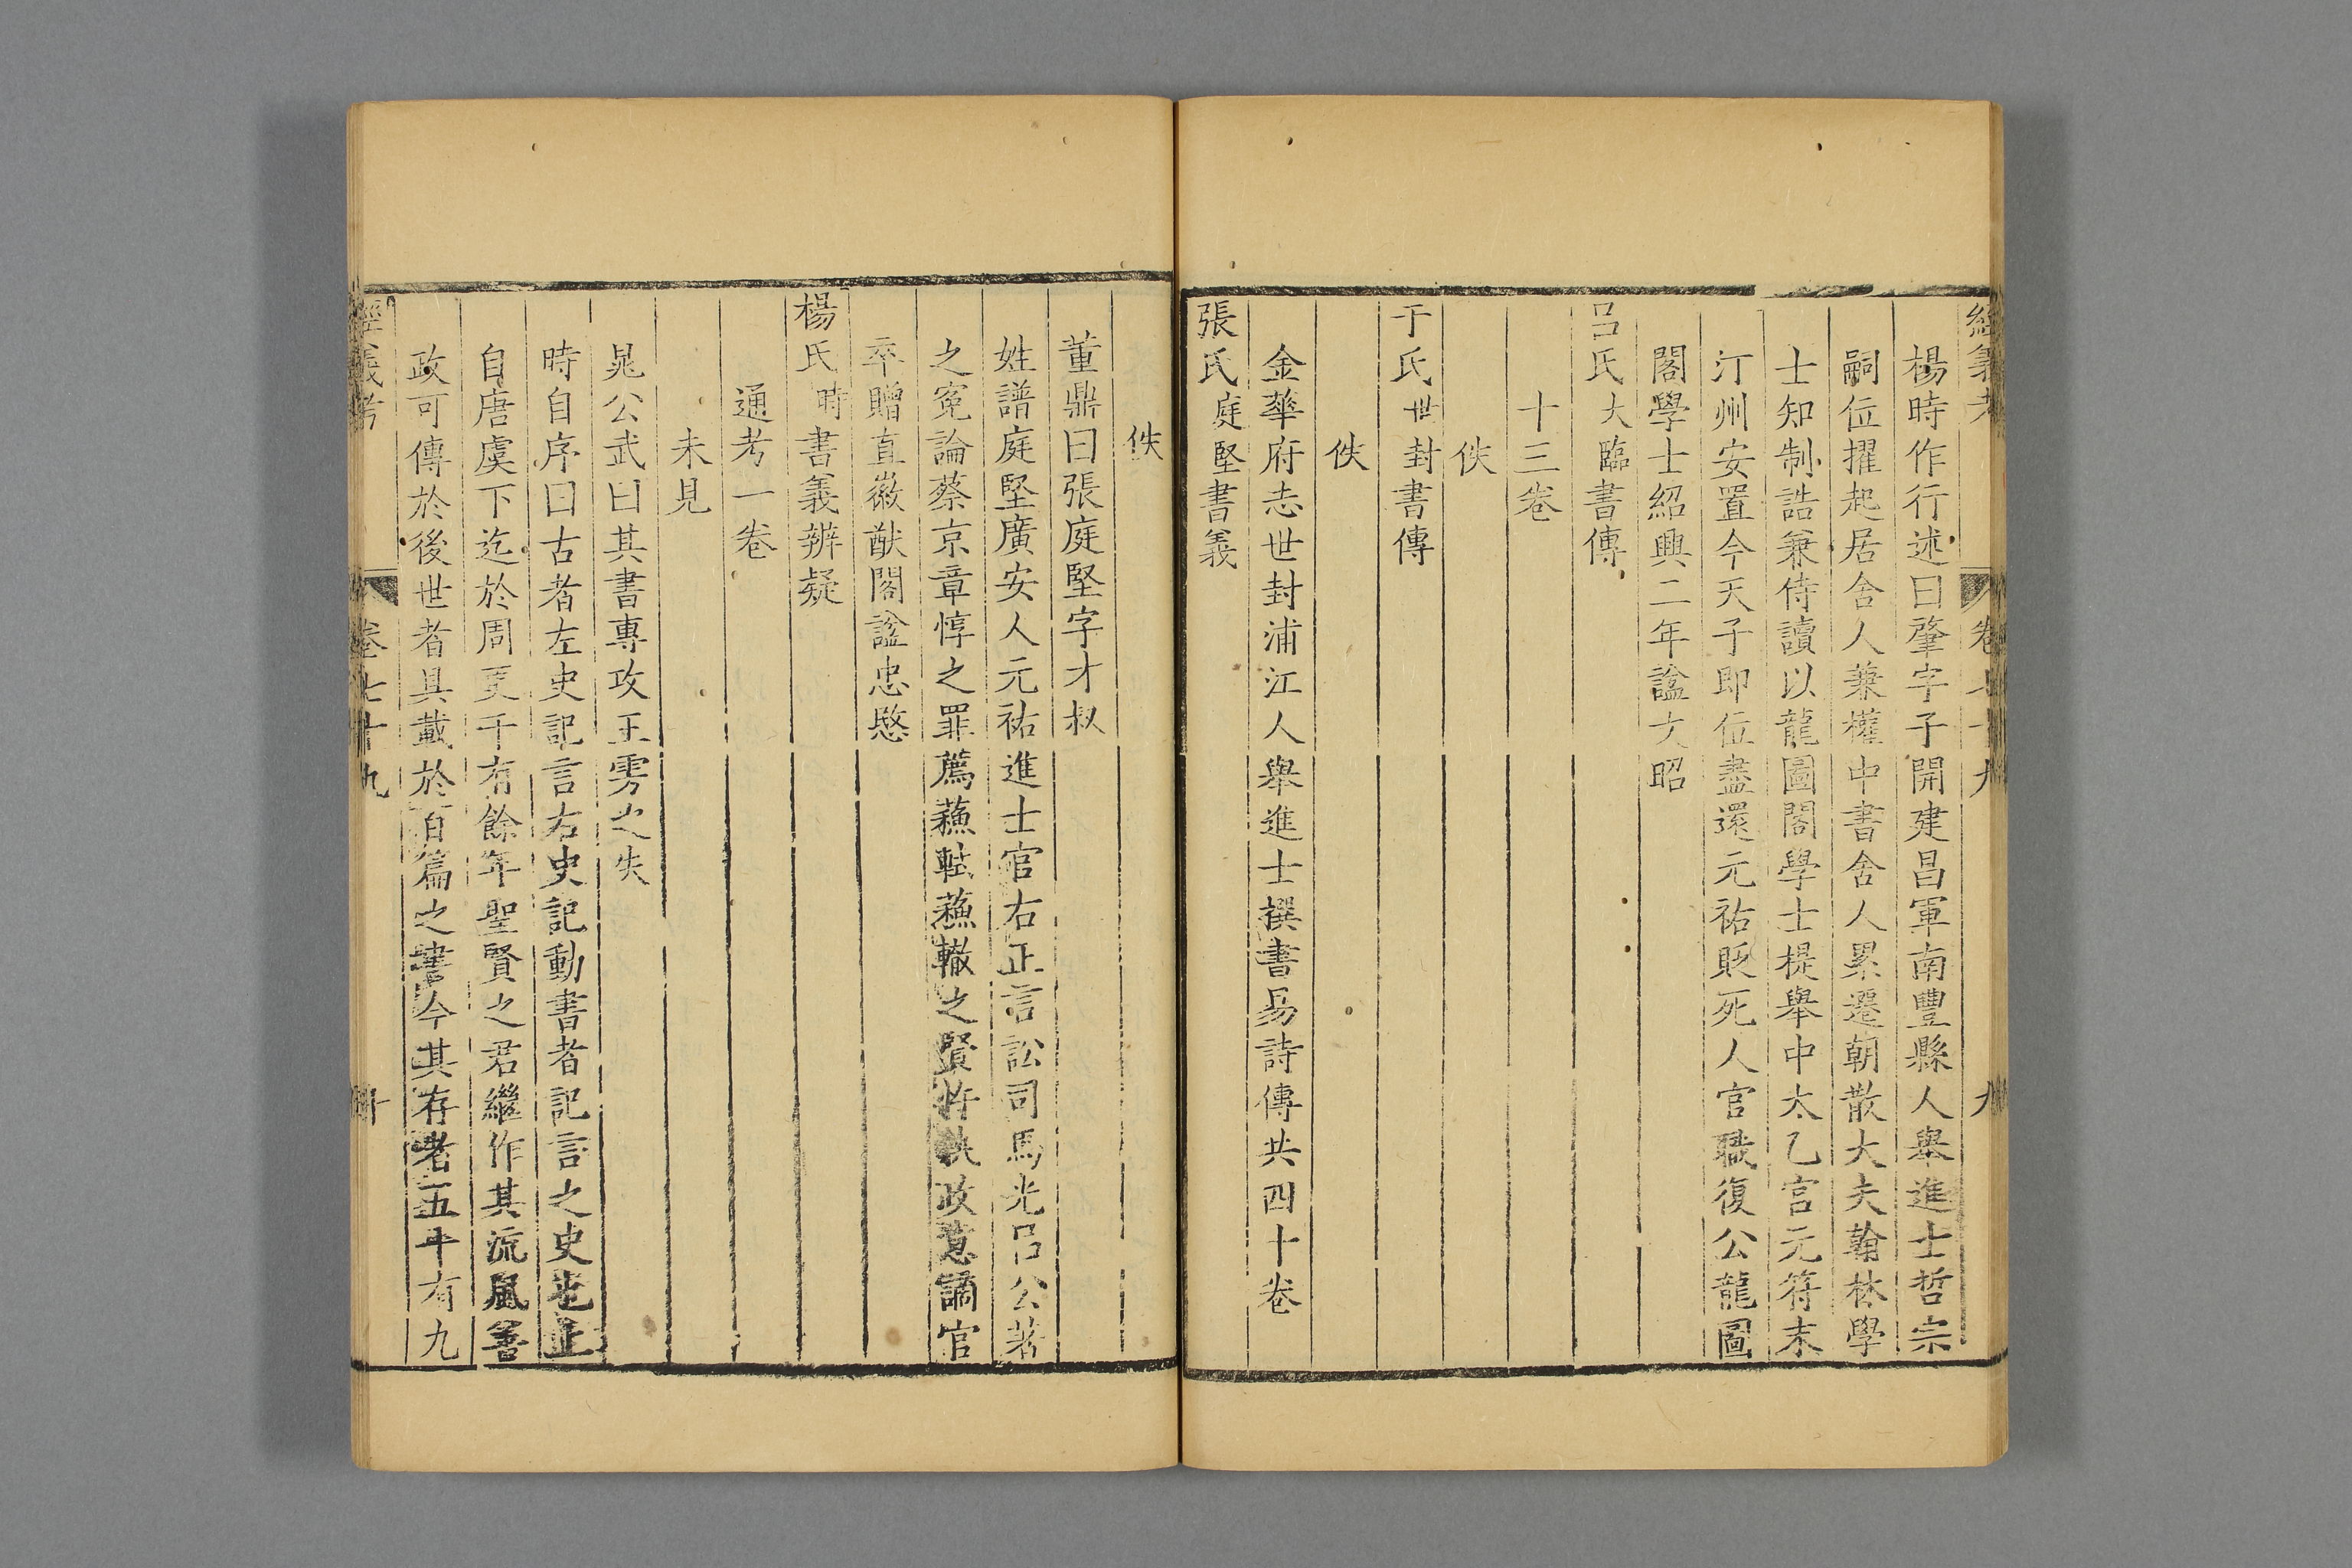 經義考
卷七十九
九
楊時作行述曰肇字子開建昌軍南豐縣人舉進士哲宗
嗣位擢起居舍人兼權中書舍人累遷朝散大夫翰林學
士知制誥兼侍讀以龍圖閣學士提舉中太乙宮元符末
汀州安置今天子即位盡還元祐貶死人官職復公龍圖
閣學士紹興二年諡文昭
呂氏大臨書傳
十三卷
佚
于氏世封書傳
佚
金華府志世封浦江人舉進士撰書易詩傳共四十卷
張氏庭堅書義
佚
董鼎曰張庭堅字才叔
姓譜庭堅廣安人元祐進士官右正言訟司馬光呂公著
之寃論蔡京章惇之罪薦蘇軾蘇轍之賢忤執政意謫官
卒贈直徽猷閣諡忠愍
楊氏時書義辨疑
通考一卷
未見
晁公武曰其書專攻王雱之失
時自序曰古者左史記言右史記動書者記言之史也上
自唐虞下迄於周更千有餘年聖賢之君繼作其流風善
政可傳於後世者具載於百篇之書今其存者五十有九
經義考
卷七十九
十